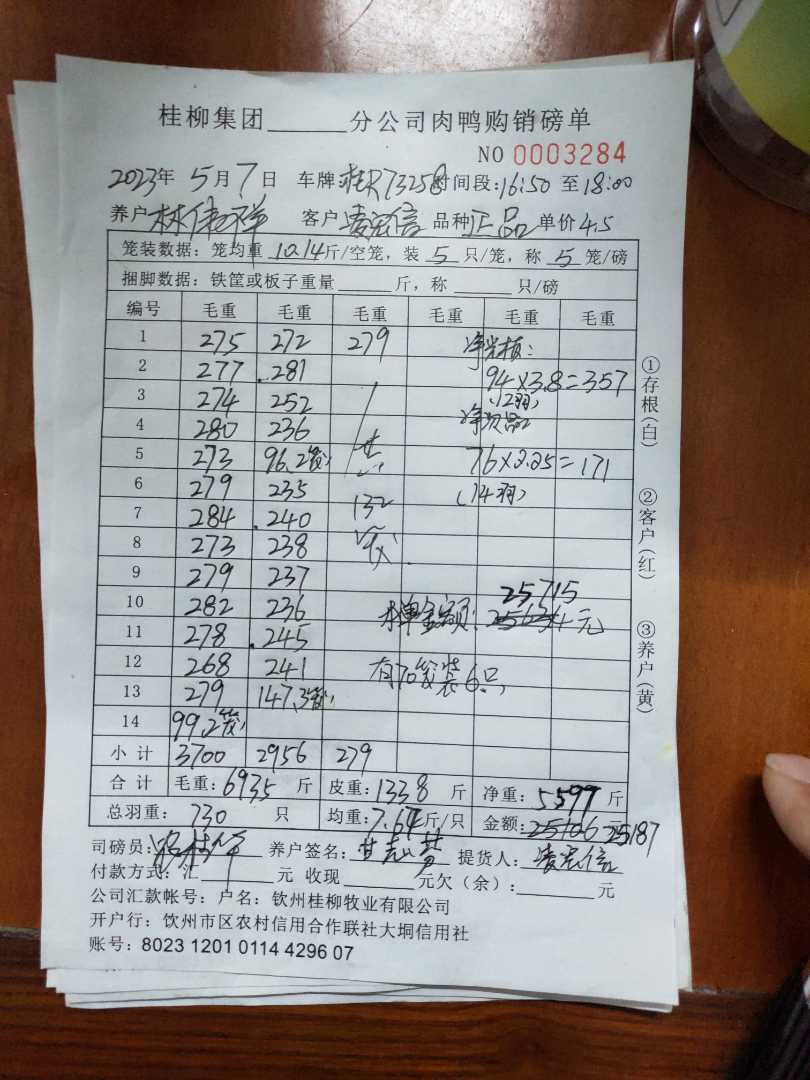 桂柳集团______分公司肉鸭购销磅单
NO 0003284
2023年 5月 7日 车牌 73258 时间段:16:50 至18:00
养户 林伟祥 客户 凌宏信 品种 正品 单价 4.5
笼装数据: 笼均重 10.14斤/空笼, 装 5 只/笼, 称 5 笼/磅
捆脚数据: 铁筐或板子重量______斤, 称______只/磅
编号 毛重 毛重 毛重 毛重 毛重 毛重
1 275 272 279 净光板:
2 277 281 94×3.8=357
3 274 252 (12羽)
4 280 236 净次品
5 273 96.2笼 共 76×2.25=171
6 279 235 (14羽)
7 284 240 132
8 273 238 笼
9 279 237
10 282 236 25715
11 278 245 本单金额: 元
12 268 241 有70笼装6只,
13 279 147.3笼
14 99.2笼
小计 3700 2956 279
合计 毛重:6935 斤 皮重:1338 斤 净重:5597 斤
总羽重: 730 只 均重:7.67斤/只 金额:25106 元 25187
司磅员: 养户签名: 提货人: 凌宏信
付款方式:汇______元 收现______元欠(余):______元
公司汇款帐号: 户名: 钦州桂柳牧业有限公司
开户行: 钦州市区农村信用合作联社大垌信用社
账号: 8023 1201 0114 4296 07
①存根(白)
②客户(红)
③养户(黄)